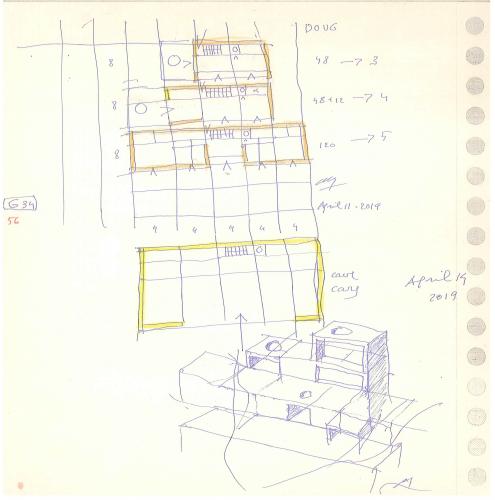 DOUG
8
48 → 3
8
48+12 → 4
8
120 → 5
April 11 - 2019
G 34
56
4 4 4 4 4
cave
April 14
2019